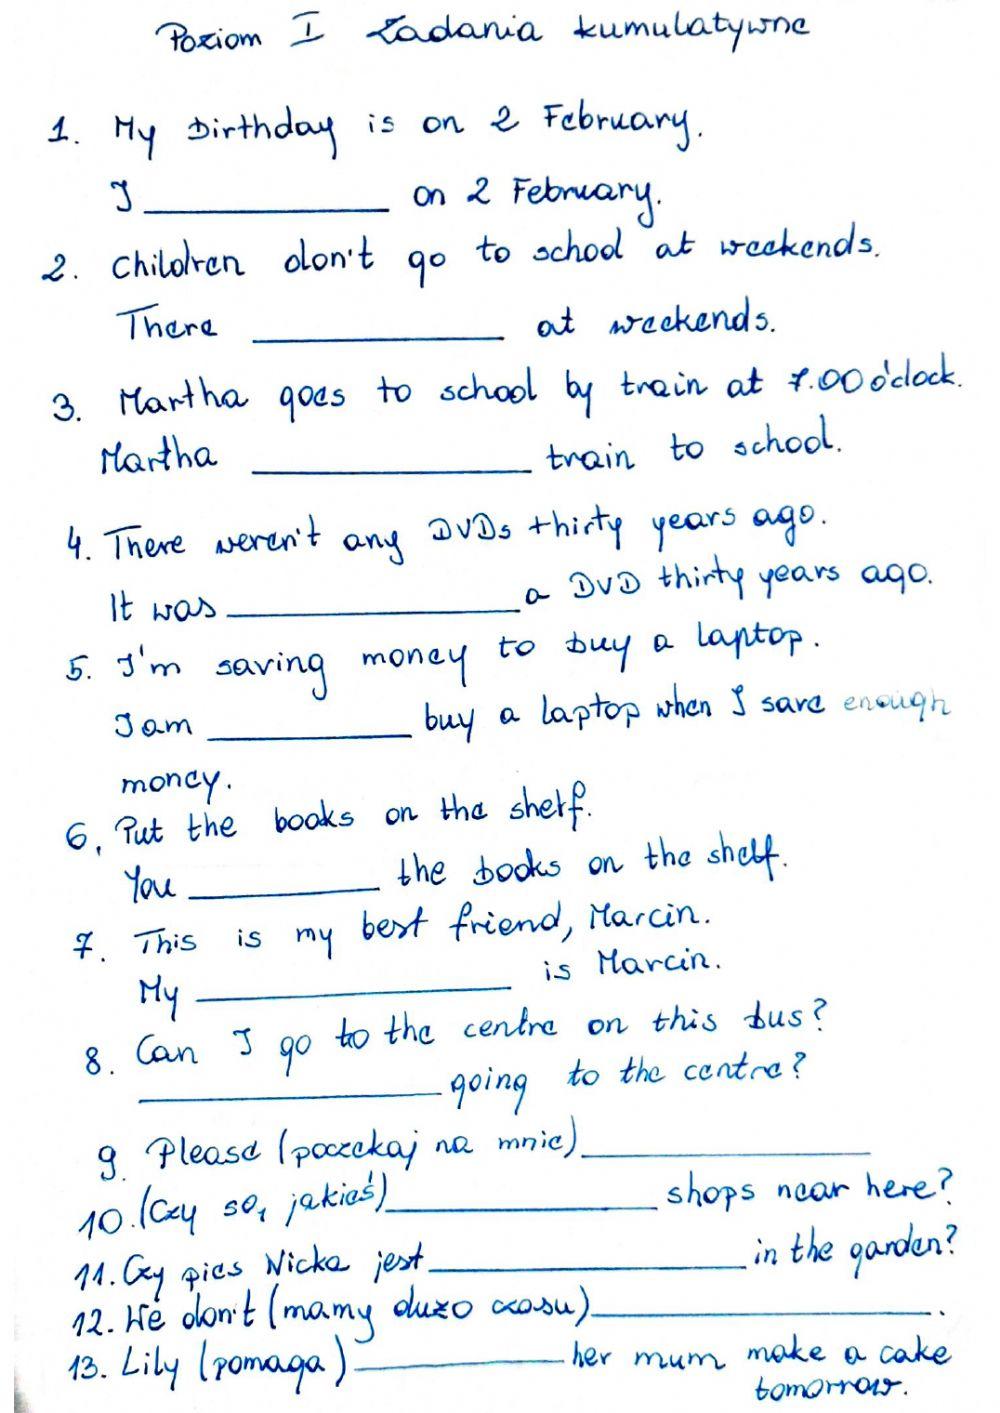 Poziom I Zadania kumulatywne
1. My birthday is on 2 February.
I ____________ on 2 February.
2. Children don't go to school at weekends.
There ____________ at weekends.
3. Martha goes to school by train at 7.00 o'clock.
Martha ____________ train to school.
4. There weren't any DVDs thirty years ago.
It was ____________ a DVD thirty years ago.
5. I'm saving money to buy a laptop.
I am ____________ buy a laptop when I save enough
money.
6. Put the books on the shelf.
You ____________ the books on the shelf.
7. This is my best friend, Marcin.
My ____________ is Marcin.
8. Can I go to the centre on this bus?
____________ going to the centre?
9. Please (poczekaj na mnie) ____________
10. (Czy są jakieś) ____________ shops near here?
11. Czy pies Nicka jest ____________ in the garden?
12. We don't (mamy dużo czasu) ____________.
13. Lily (pomaga) ____________ her mum make a cake
tomorrow.